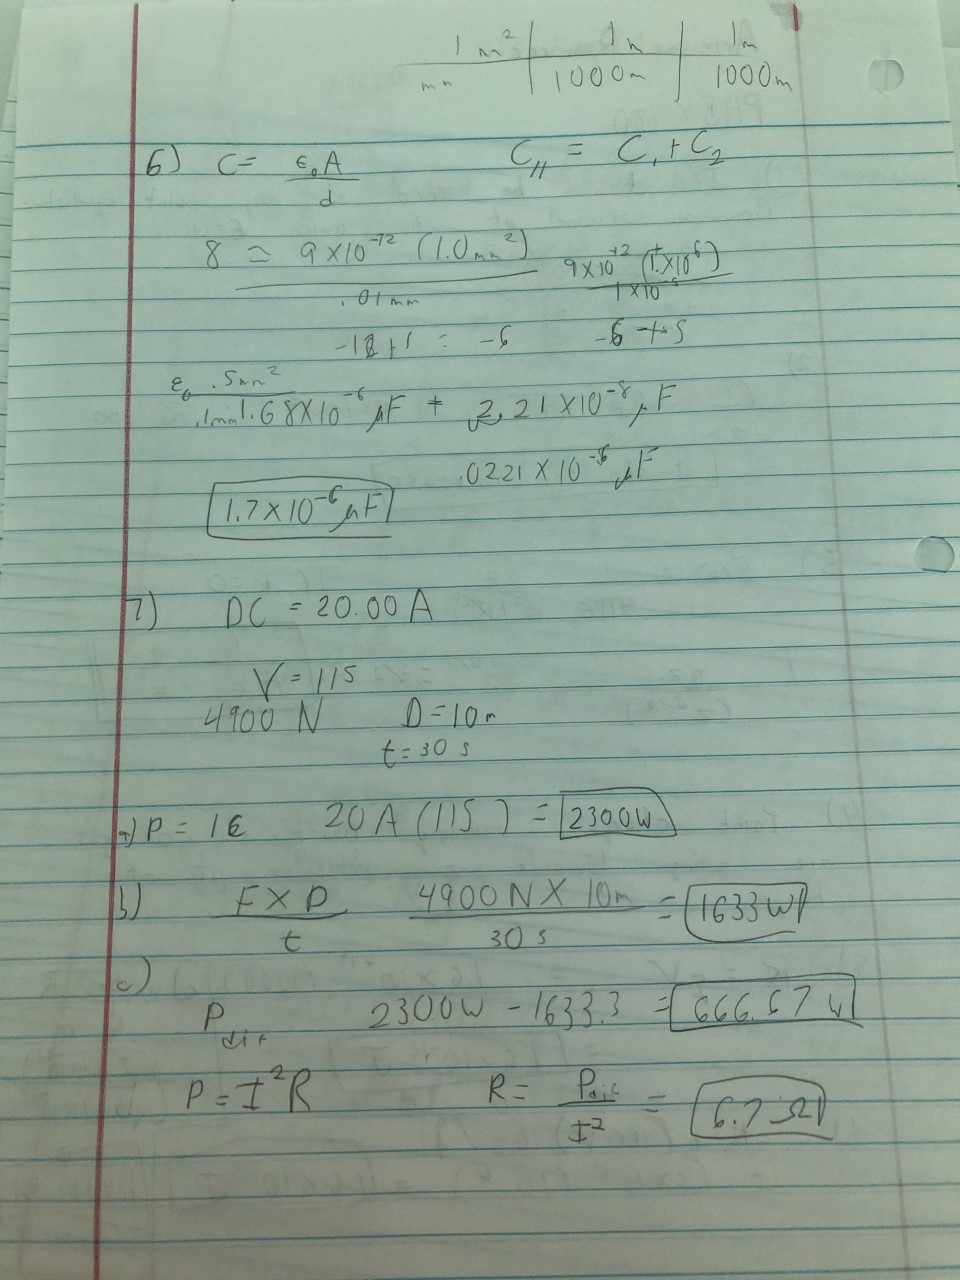 1 m² | 1m | 1m
mm | 1000m | 1000m
6) C= ε₀A / d C,, = C₁ + C₂
8 = 9×10⁻¹² (1.0mm²) / .01mm 9×10⁻¹² (1.×10⁶) / 1×10⁻⁵
-12+1 = -6 -6 + 5
ε₀ .5mm² / .1mm 1.68×10⁻⁶ μF + 2.21×10⁻⁸ μF
.0221×10⁻⁶ μF
1.7×10⁻⁶ μF
7) DC = 20.00 A
V = 115
4900 N D = 10m
t = 30 s
P = IE 20A (115) = 2300W
b) F×D / t 4900N × 10m / 30 s = 1633W
c)
P 2300W - 1633.3 = 666.67 W
P = I²R R = P / I² = 6.7 Ω